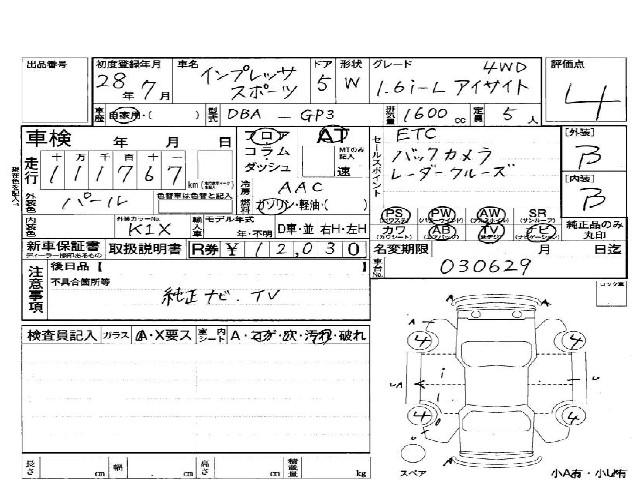 出品番号
初度登録年月 28年 7月
車名 インプレッサ スポーツ
ドア 5
形状 W
グレード 4WD 1.6i-L アイサイト
評価点 4
車歴 自家用・( )
型式 DBA-GP3
排気量 1600cc
定員 5人
車検 年 月 日
フロア・コラム・ダッシュ
AT
MTのみ記入 速
セールスポイント
ETC
バックカメラ
レーダークルーズ
[外装] B
[内装] B
走行 十 万 千 百 十 一
111767 km
冷房 AAC
外装色 パール
色替車は色替と記入
燃料 ガソリン・軽油・( )
内装色
外装カラーNo. K1X
輸入車
モデル年式 年・不明
D車・並 右H・左H
PS PW AW SR
カワ AB TV ナビ
純正品のみ丸印
新車保証書
ディーラー捺印あるもの
取扱説明書
R券 ¥12,030
名変期限 月 日迄
車台No. 030629
注意事項
後日品【
不具合箇所等
純正ナビ、TV
検査員記入
ガラス A・X要ス
車内シート A・コゲ・穴・汚れ・破れ
4
4
4
4
A
A
スペア
長さ cm
幅 cm
高さ cm
積載量 kg
小A有・小U有